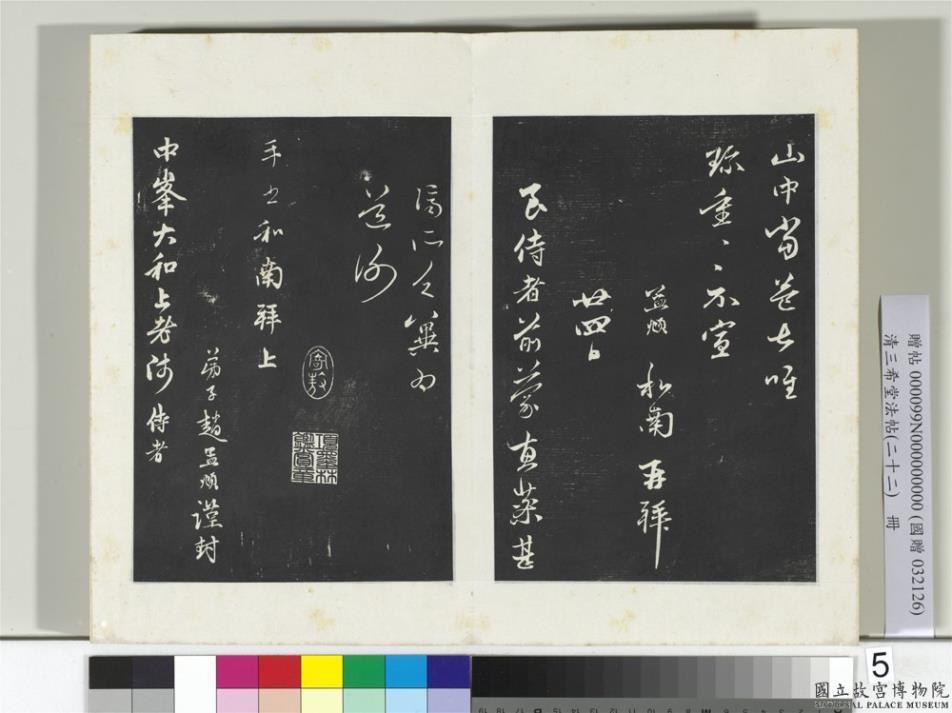 山中當益甚唯
珍重〻〻不宣
孟頫 和南再拜
廿四日
良侍者前蒙惠藥甚
濟所乏冀為
道謝
手書和南拜上
弟子趙孟頫謹封
中峯大和上老師侍者
項墨林
鑑賞章
贈帖 000099N000000000 (國贈 032126)
清三希堂法帖(二十二) 冊
5
國立故宮博物院
NATIONAL PALACE MUSEUM